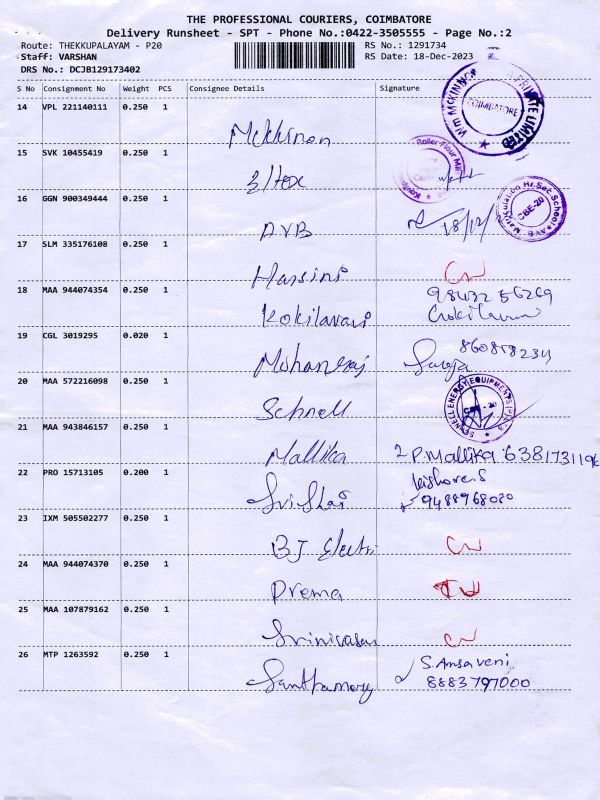 THE PROFESSIONAL COURIERS, COIMBATORE
Delivery Runsheet - SPT - Phone No.:0422-3505555 - Page No.:2
Route: THEKKUPALAYAM - P20 RS No.: 1291734
Staff: VARSHAN RS Date: 18-Dec-2023
DRS No.: DCJB129173402
S No Consignment No Weight PCS Consignee Details Signature
14 VPL 221140111 0.250 1
COIMBATORE
15 SVK 10455419 0.250 1
Roller Flour Mill
16 GGN 900349444 0.250 1
AVB 18/12/
Matriculation Hr. Sec. School AVB CBE-20
17 SLM 335176108 0.250 1
Hassini
18 MAA 944074354 0.250 1
Kokilavani
19 CGL 3019295 0.020 1
Mohanraj
20 MAA 572216098 0.250 1
Schnell
SCHNELL ENERGY EQUIPMENTS (P)
21 MAA 943846157 0.250 1
Mallika P. Mallika 6381731196
22 PRO 15713105 0.200 1
kishore.S
9488968020
23 IXM 505502277 0.250 1
BJ Electri
24 MAA 944074370 0.250 1
Prema
25 MAA 107879162 0.250 1
Srinivasan
26 MTP 1263592 0.250 1
S. Ansaveni
8883797000